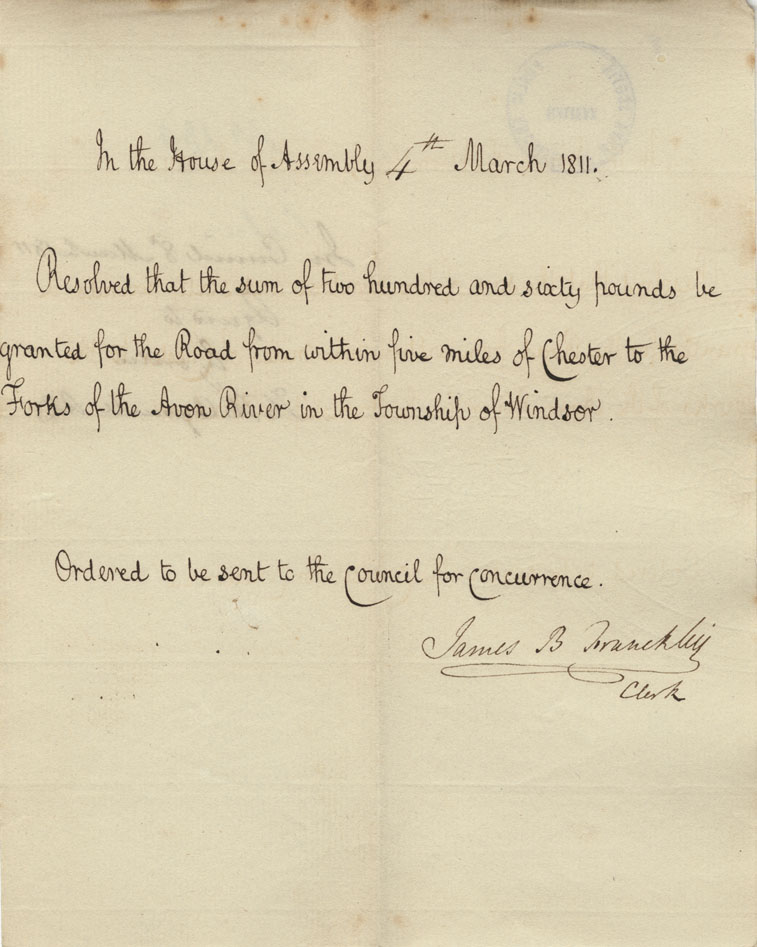 In the House of Assembly 4th March 1811.
Resolved that the sum of two hundred and sixty pounds be
granted for the Road from within five miles of Chester to the
Forks of the Avon River in the Township of Windsor.
Ordered to be sent to the Council for Concurrence.
James B Franckliy
Clerk